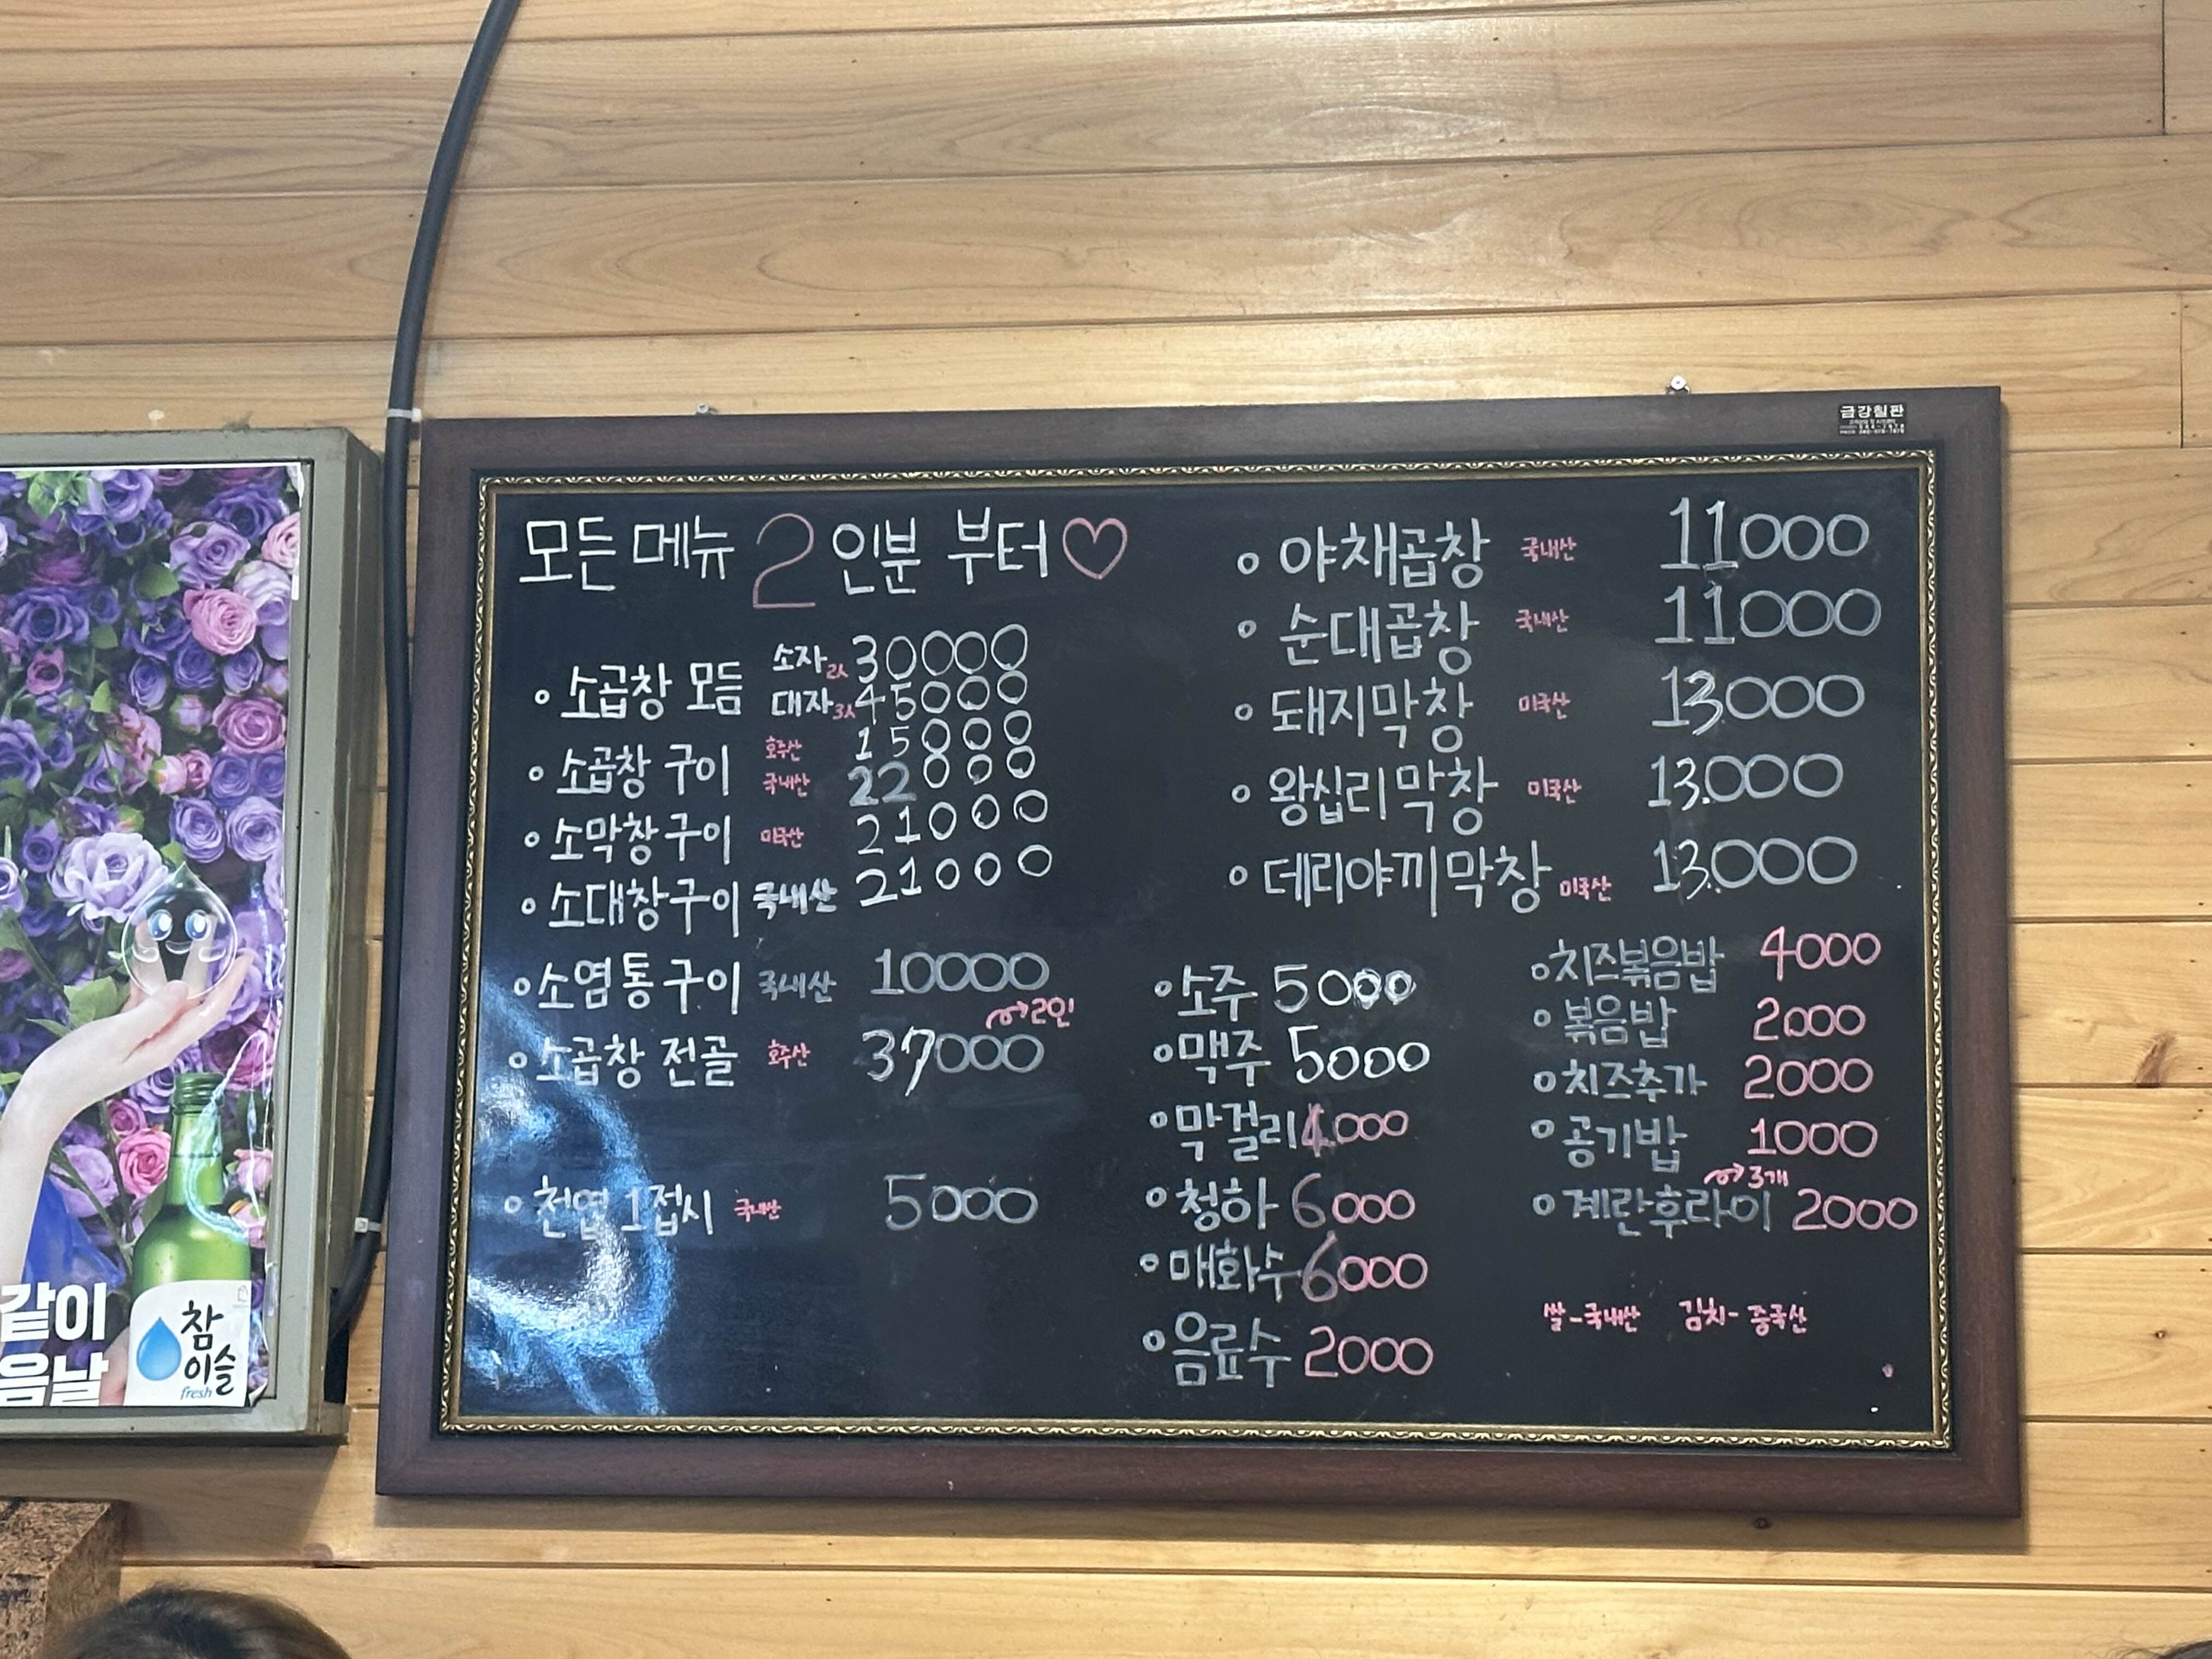 모든메뉴 2 인분 부터♡
소곱창 모듬 소자 2人 30000
대자 3人 45000
소곱창 구이 호주산 15000
국내산 22000
소막창구이 미국산 21000
소대창구이 국내산 21000
소염통구이 국내산 10000
소곱창 전골 호주산 37000 →2인
천엽 1접시 국내산 5000
야채곱창 국내산 11000
순대곱창 국내산 11000
돼지막창 미국산 13000
왕십리막창 미국산 13.000
데리야끼막창 미국산 13.000
소주 5000
맥주 5000
막걸리 4000
청하 6000
매화수 6000
음료수 2000
치즈볶음밥 4000
볶음밥 2000
치즈추가 2000
공기밥 1000
계란후라이 →3개 2000
쌀-국내산 김치-중국산
금강칠판
같이
음날
참
이슬
fresh